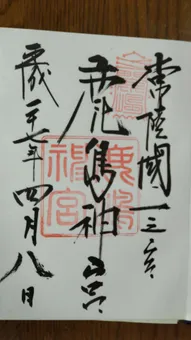 常陸國一之宮
鹿島神宮
平成二十七年四月八日
鹿嶋
神宮